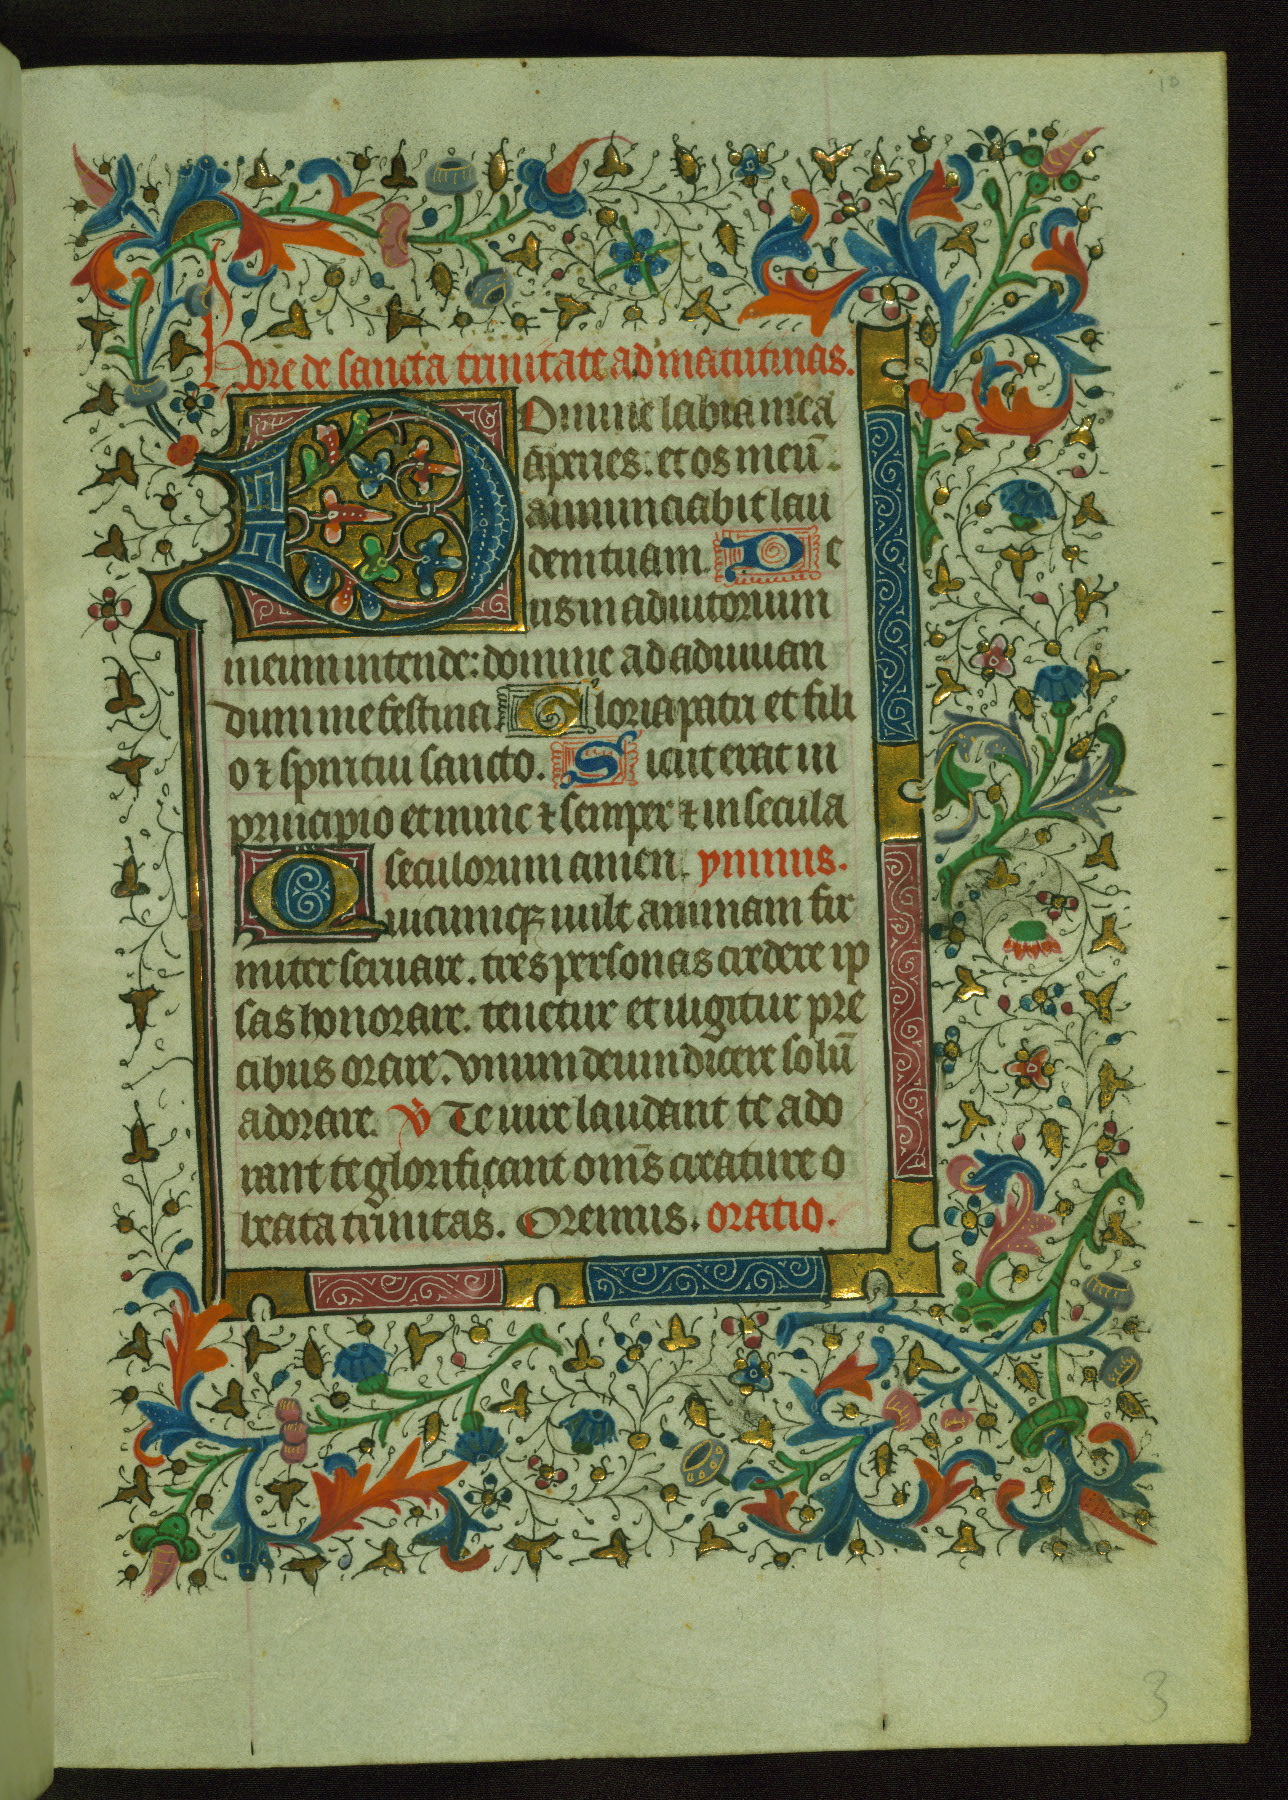 10
Hore de sancta trinitate ad matutinas.
Domine labia mea
aperies. et os meū.
annunciabit lau
dem tuam. De
us in adiutorium
meum intende: domine ad adiuuan
dum me festina Gloria patri et fili
o ⁊ spiritui sancto. Sicut erat in
principio et nunc ⁊ semper ⁊ in secula
seculorum amen. ymnus.
Quicumqꝫ uult animam fir
miter seruare. tres personas credere ip
sas honorare. tenetur et iugitur pre
cibus orare. vnum deum dicere solū
adorare. ℣ Te iure laudant te ado
rant te glorificant om̄s creature o
beata trinitas. Oremus. oratio.
3